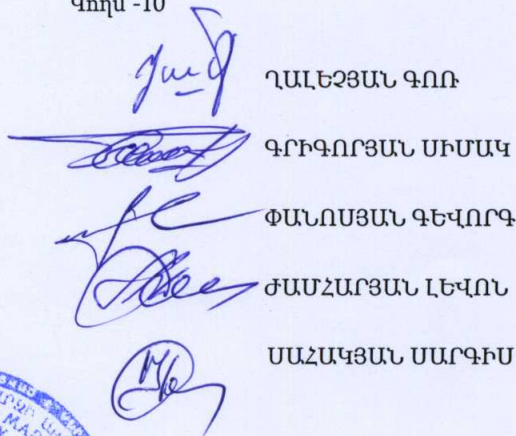 Կողմ -10
ՂԱԼԵՉՅԱՆ ԳՈՌ
ԳՐԻԳՈՐՅԱՆ ՍԻՄԱԿ
ՓԱՆՈՍՅԱՆ ԳԵՎՈՐԳ
ԺԱՄՀԱՐՅԱՆ ԼԵՎՈՆ
ՍԱՀԱԿՅԱՆ ՍԱՐԳԻՍ